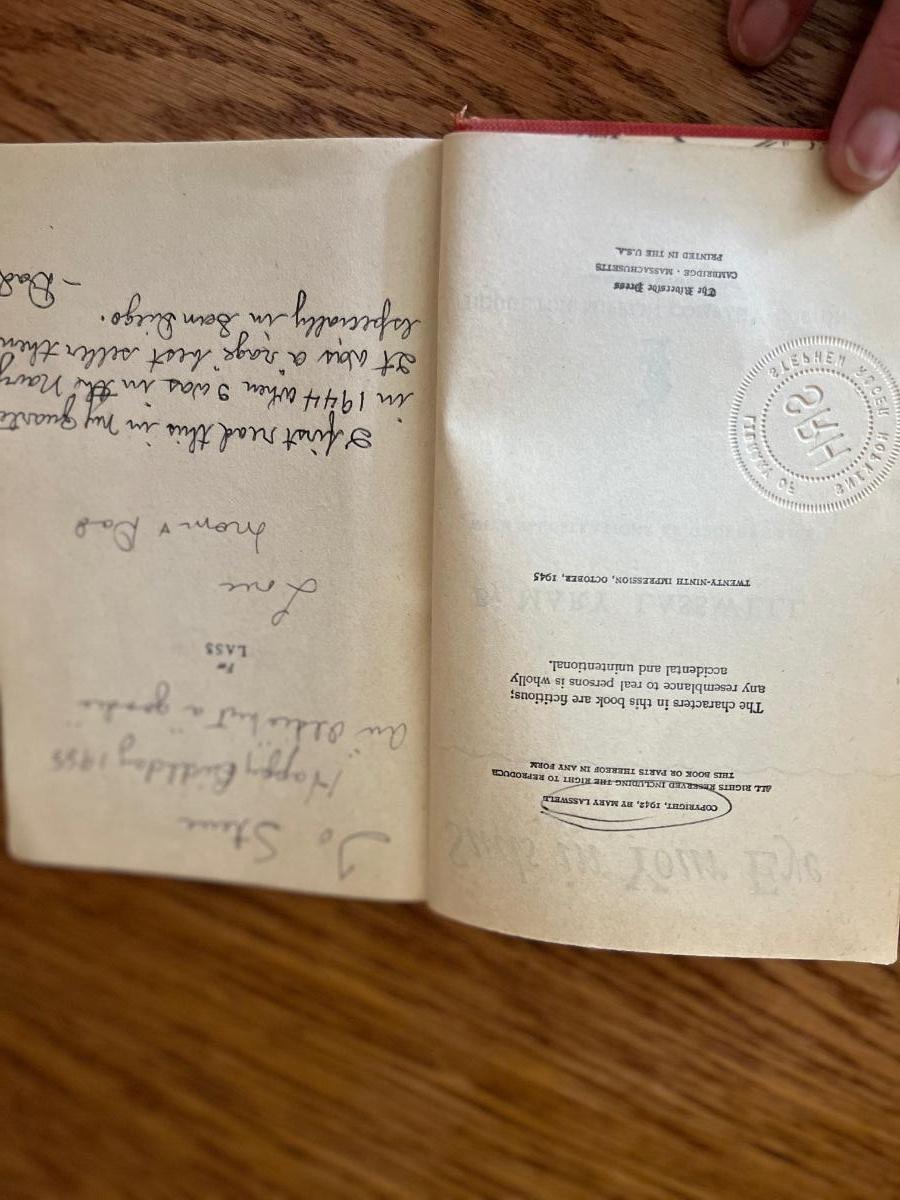 COPYRIGHT, 1942, BY MARY LASSWELL
ALL RIGHTS RESERVED INCLUDING THE RIGHT TO REPRODUCE
THIS BOOK OR PARTS THEREOF IN ANY FORM
The characters in this book are fictitious;
any resemblance to real persons is wholly
accidental and unintentional.
TWENTY-NINTH IMPRESSION, OCTOBER, 1945
LIBRARY OF
STEPHEN
The Riverside Press
CAMBRIDGE · MASSACHUSETTS
PRINTED IN THE U.S.A.
To Steve
Happy Birthday 1988
An "oldie but a goodie"
LASS
Love
Mom + Dad
I first read this in my
in 1944 when I was in the Navy
It was a "rage" best seller then
Especially in San Diego.
- Dad